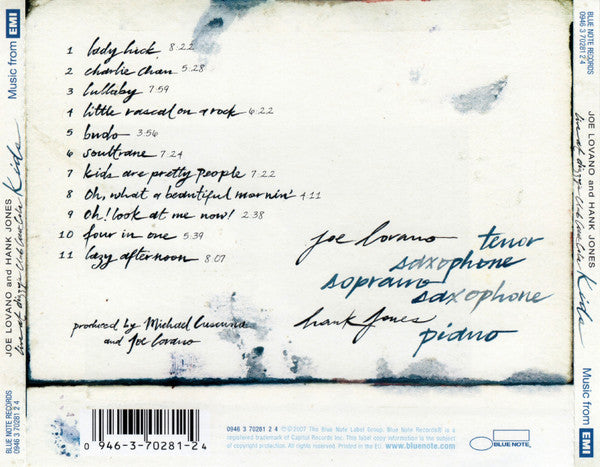 Music from EMI
JOE LOVANO and HANK JONES
live at Dizzy's Club Coca-Cola Kids
BLUE NOTE RECORDS
0946 3 70281 2 4
1 lady luck 8:22
2 charlie chan 5:28
3 lullaby 7:59
4 little rascal on a rock 6:22
5 budo 3:56
6 soultrane 7:24
7 kids are pretty people 7:22
8 Oh, what a beautiful mornin' 4:11
9 Oh! look at me now! 2:38
10 four in one 5:39
11 lazy afternoon 8:07
joe lovano tenor
saxophone
soprano
saxophone
hank jones
piano
produced by Michael Cuscuna
and Joe Lovano
0946 3 70281 2 4
0 946-3-70281-2 4
℗©2007 The Blue Note Label Group. Blue Note Records® is a
registered trademark of Capitol Records Inc. This label copy information is the subject
of copyright protection. All rights reserved. Printed in the U.S.A.
www.bluenote.com
BLUE NOTE
BLUE NOTE RECORDS
0946 3 70281 2 4
JOE LOVANO and HANK JONES
live at Dizzy's Club Coca-Cola Kids
Music from EMI